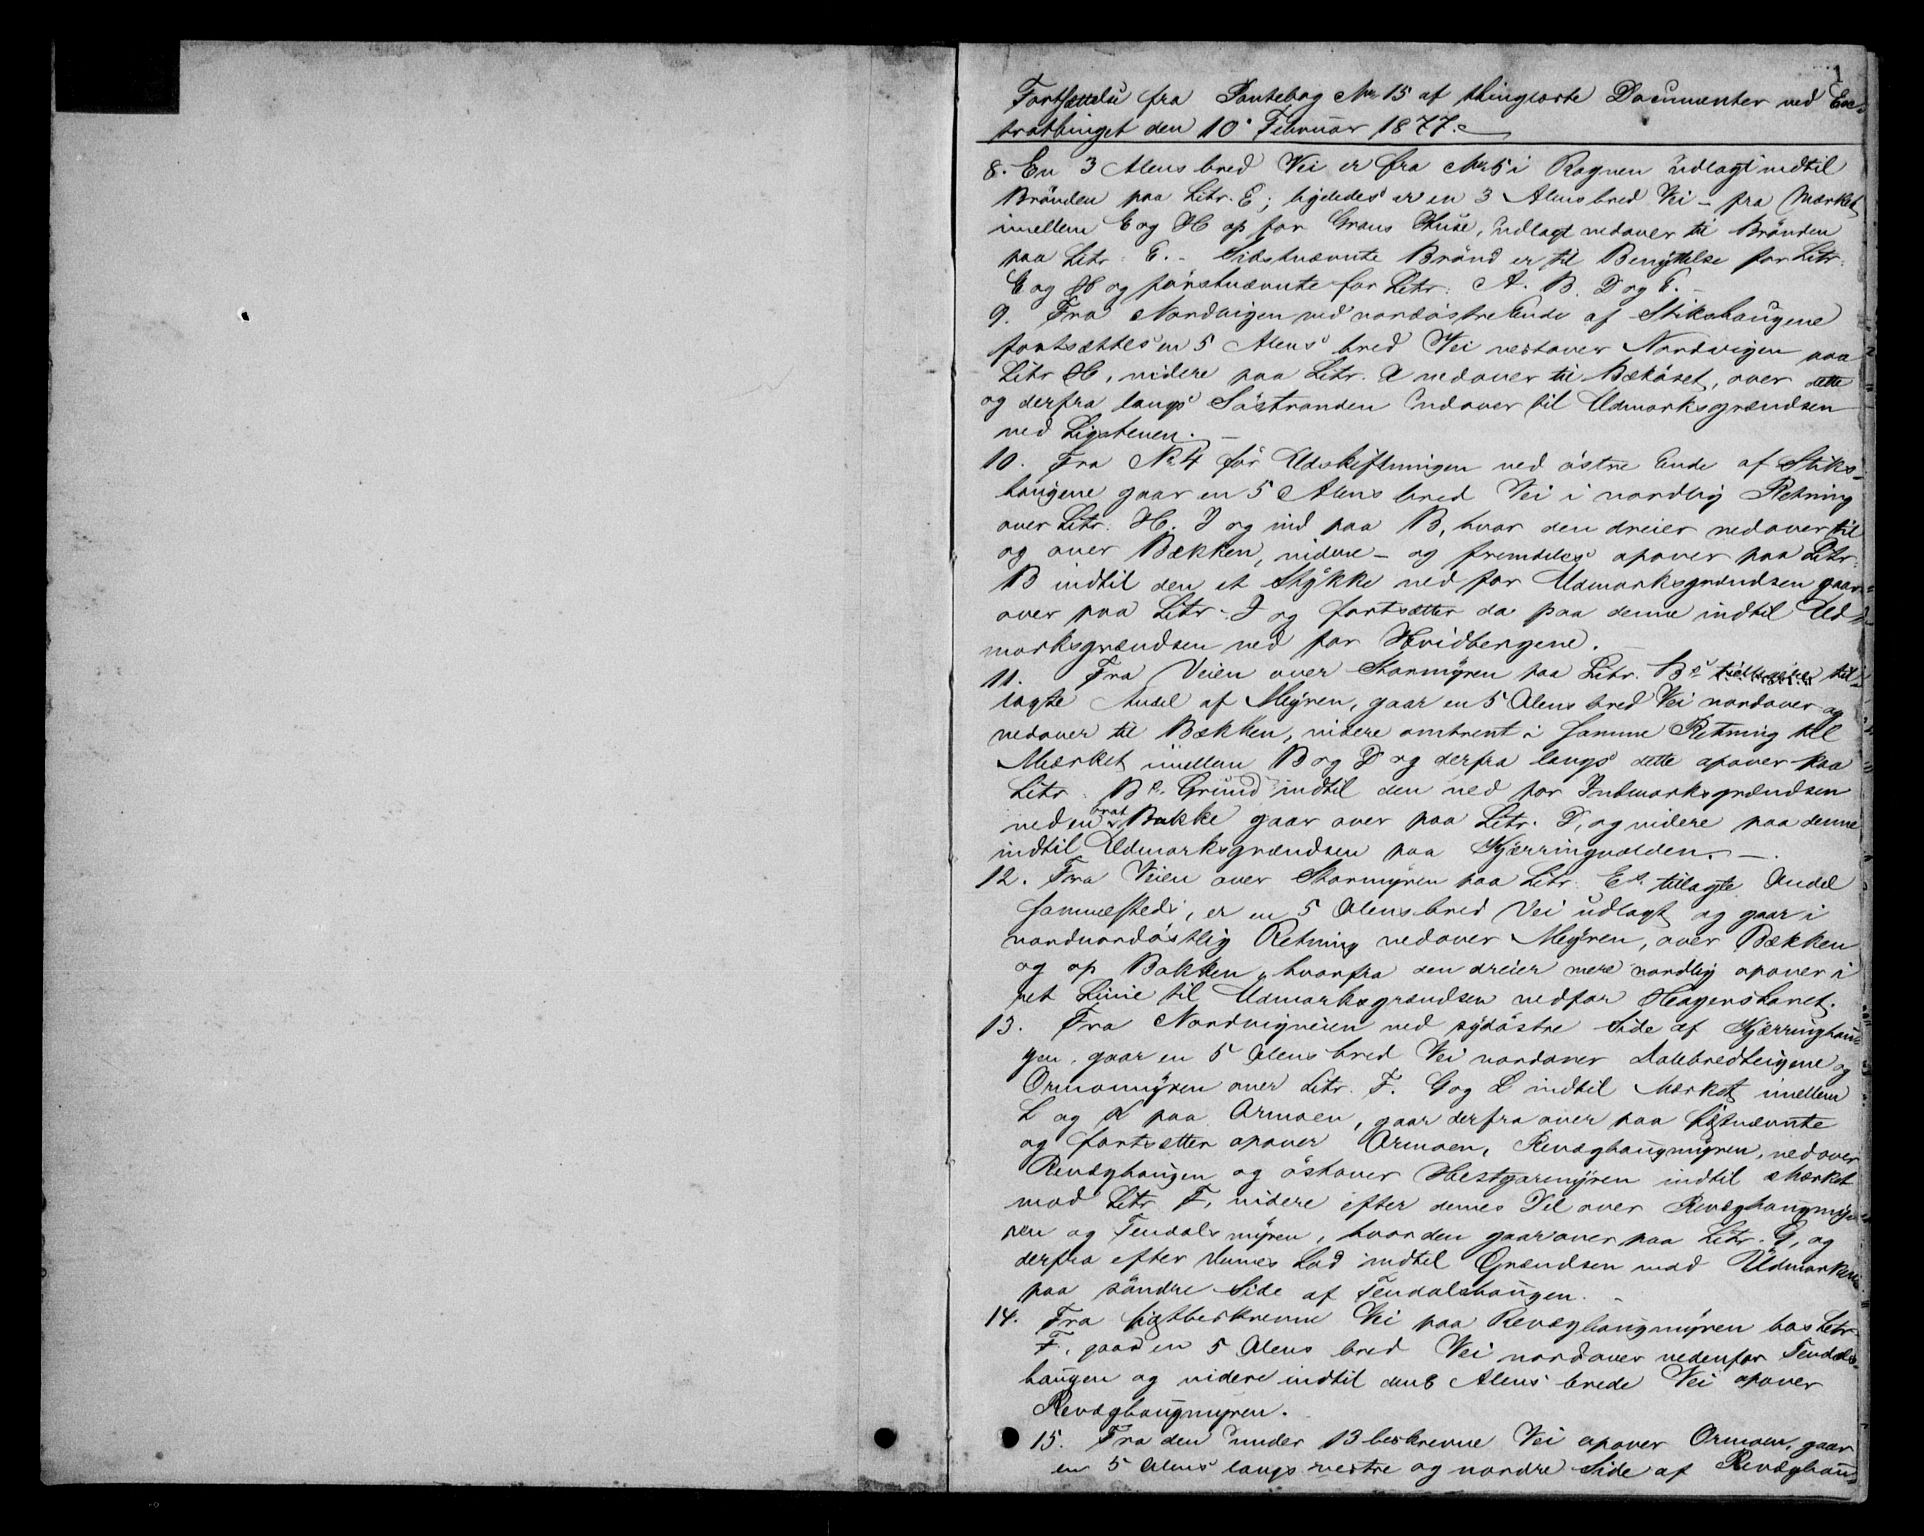 1
Fortsættelse fra Pantebog No 15 af thinglæste Documenter ved Ex-
trathinget den 10 Februar 1877.
8. En 3 Alens bred Vei er fra No 5 i Rognen udlagt indtil
Brönden paa Litr. E; ligeledes er en 3 Alens bred Vei – fra Mærket
imellem E og H op for Grans Huse, udlagt nedover til Brönden
paa Litr: E. – Sidstnævnte Brönd er til Benyttelse for Litr:
E og H og förstnævnte for Litr: A. B. D og F. –
9. Fra Nordvigen ved nordöstre Ende af Stikshaugene
fortsættes en 5 Alens bred Vei vestover Nordvigen paa
Litr H, videre paa Litr. A nedover til Bæköset, over dette
og derfra langs Söstranden udover til Udmarksgrændsen
ved Ligstenen. –
10. Fra No 4 för Udskiftningen ved östre Ende af Stiks-
haugene gaar en 5 Alens bred Vei i nordlig Retning
over Litr: H. J og ind paa B, hvor den dreier nedover til
og over Bækken, videre – og fremdeles opover paa Litr:
B indtil den et Stykke ned for Udmarksgrændsen gaar
over paa Litr. J og fortsætter da paa denne indtil Ud-
marksgrændsen ned for Hvidbergene. –
11. Fra Veien over Stormyren paa Litr. Bs til-
lagte Andel af Myren, gaar en 5 Alens bred Vei nordover og
nedover til Bækken, videre omtrent i samme Retning til
Mærket imellem B og D og derfra langs dette opover paa
Litr. Bs Grund indtil den ned for Indmarksgrændsen
ved en brat Bakke gaar over paa Litr. D, og videre paa denne
indtil Udmarksgrændsen paa Kjærringvolden. –
12. Fra Veien over Stormyren paa Litr: Es tillagte Andel
sammesteds, er en 5 Alens bred Vei udlagt og gaar i
nordnordöstlig Retning nedover Myren, over Bækken
og op Bakken, hvorfra den dreier mere nordlig opover i
ret Linie til Udmarksgrændsen nedfor
13. Fra Nordvigveien ved sydöstre Side af Kjærringhau-
gen, gaar en 5 Alens bred Vei nordover og
Ormomyren over Litr. F. G og L indtil Mærket imellem
L og paa Ormoen, gaar derfra over paa sidstnævnte
og fortsætter opover Ormoen, Revæghaugmyren, nedover
Revæghaugen og östover Hestgarmyren indtil Mærket
mod Litr F, videre efter dennes Del over Revæghaugmy-
ren og Tendalsmyren, hvor den gaar over paa Litr. G, og
derfra efter dennes Lod indtil Grændsen mod Udmarken
paa söndre Side af Tendalshaugen. –
14. Fra sidstbeskrevne Vei paa Revæghaugmyren hos Litr
F, gaar en 5 Alens bred Vei nordover nedenfor Tendals-
haugen og videre indtil den 6 Alens brede Vei opover
Revæghaugmyren.
15. Fra den under 13 beskrevne Vei opover Ormoen, gaar
en 5 Alens langs vestre og nordre Side af Revæghau-